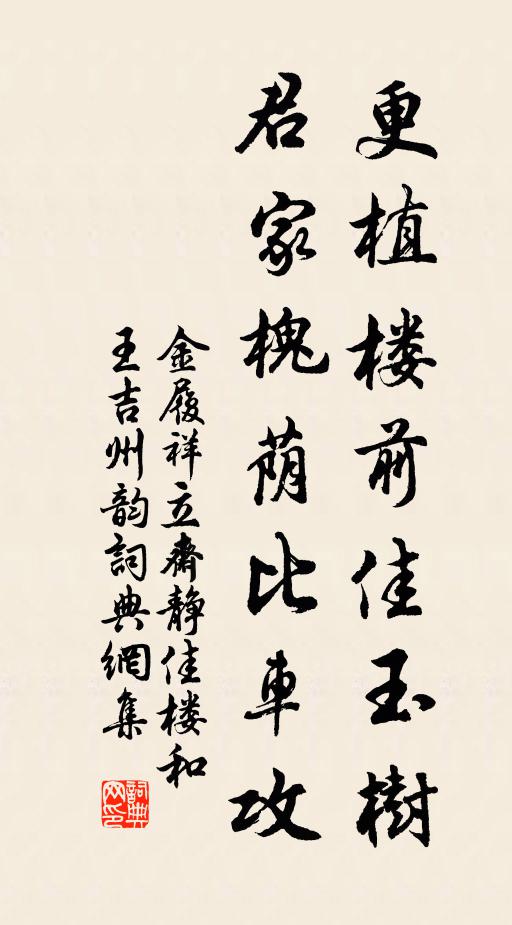 更植楼前佳玉樹
君家槐荫比車攻
金履祥立齋静佳楼和
王吉州韵詞典網集
詞典网印